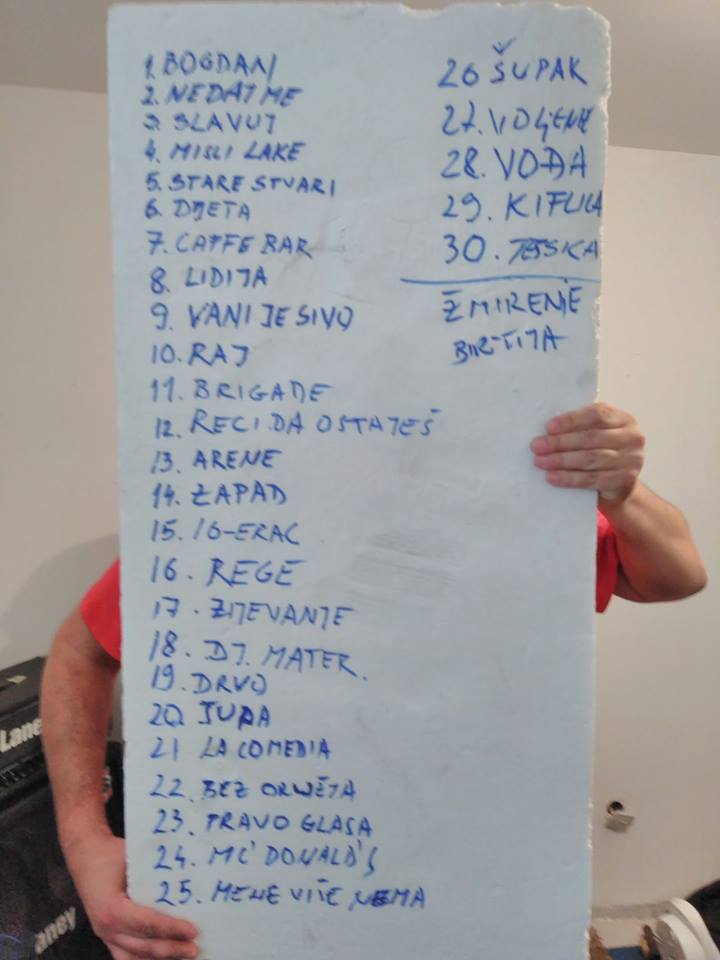 1. BOGDANI
2. NEDAJ ME
3. SLAVUJ
4. MISLI LAKE
5. STARE STVARI
6. DIJETA
7. CAFFE BAR
8. LIDIJA
9. VANI JE SIVO
10. RAJ
11. BRIGADE
12. RECI DA OSTAJEŠ
13. ARENE
14. ZAPAD
15. 16-ERAC
16. REGE
17. ZIJEVANJE
18. DJ. MATER.
19. DRVO
20. JUPA
21 LA COMEDIA
22. BEZ
23. PRAVO GLASA
24. MC' DONALD'S
25. MENE VIŠE NEMA
26 ŠUPAK
27. VOLJENE
28. VOĐA
29. KIFLICA
30. TESKA
ŽMIRENJE
BIRTIJA
Laney
aney